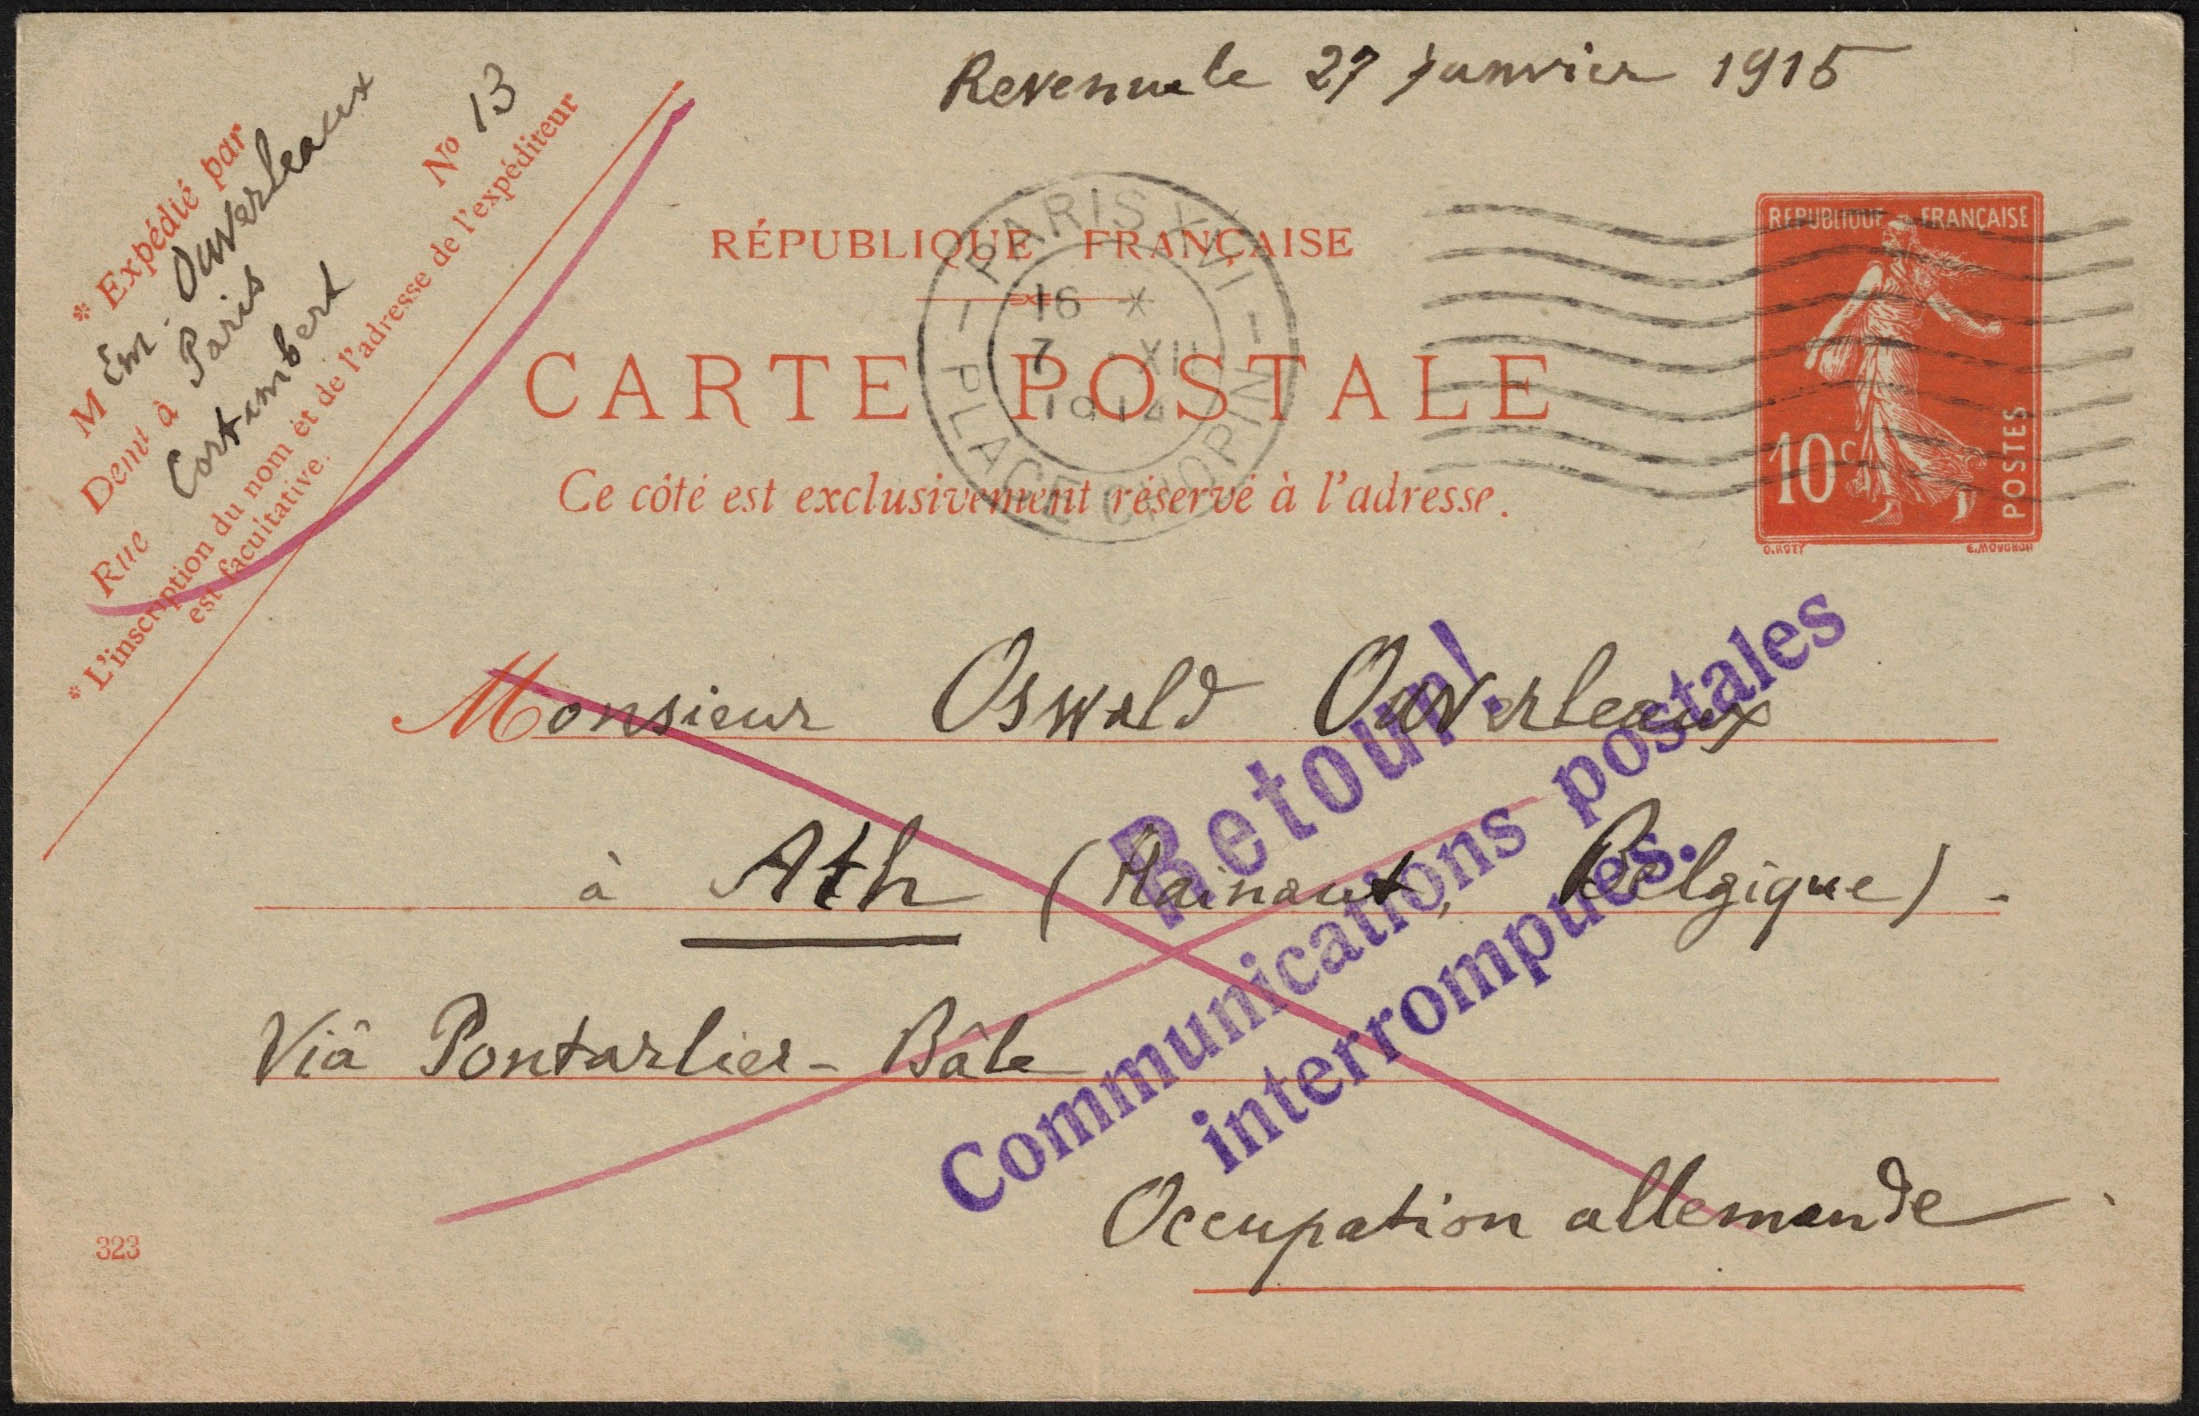 Revenue le 27 janvier 1915
* Expédié par
M Em. Ouverleaux
Demt à Paris
Rue Cortambert
No 13
* L'inscription du nom et de l'adresse de l'expéditeur
est facultative.
RÉPUBLIQUE FRANÇAISE
CARTE POSTALE
Ce côté est exclusivement réservé à l'adresse.
PARIS XVI
16 X
7 XII
1914
PLACE CHOPIN
REPUBLIQUE FRANÇAISE
10c
POSTES
O.ROTY
E.MOUCHON
Monsieur Oswald Ouverleaux
à Ath (Hainaut, Belgique) -
Viâ Pontarlier - Bâle
Occupation allemande
Retour!
Communications postales
interrompues.
323